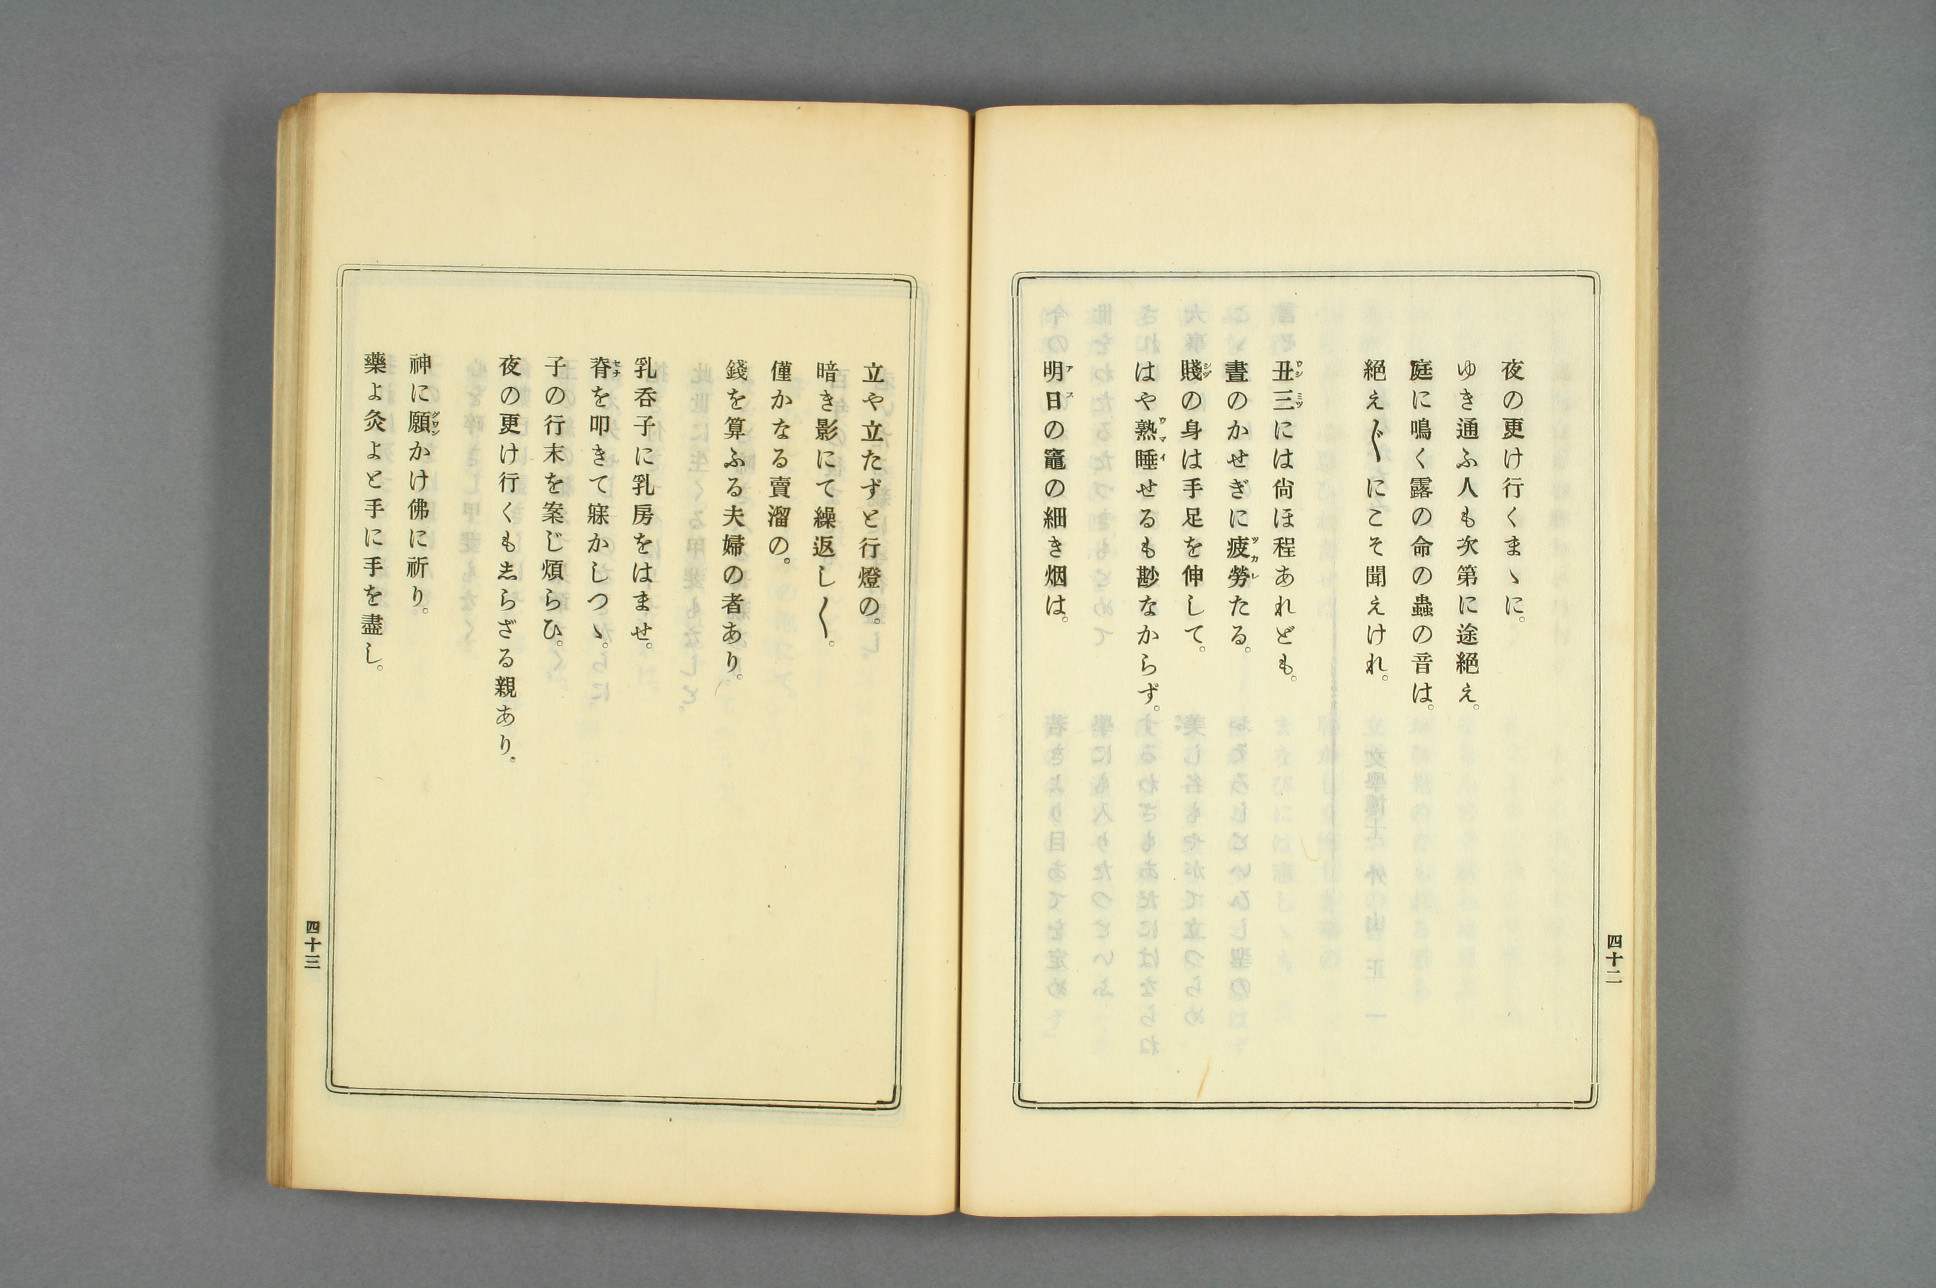 夜の更け行くまゝに。
ゆき通ふ人も次第に途絶え。
庭に鳴く露の命の蟲の音は。
絶え〴〵にこそ聞えけれ。
丑三には尙ほ程あれども。
晝のかせぎに疲勞たる。
賤の身は手足を伸して。
はや熟睡せるも尠なからず。
明日の竈の細き烟は。
四十二
立や立たずと行燈の。
暗き影にて繰返し〱。
僅かなる賣溜の。
錢を算ふる夫婦の者あり。
乳呑子に乳房をはませ。
脊を叩きて寐かしつゝ。
子の行末を案じ煩らひ。
夜の更け行くも志らざる親あり。
神に願かけ佛に祈り。
藥よ灸よと手に手を盡し。
四十三